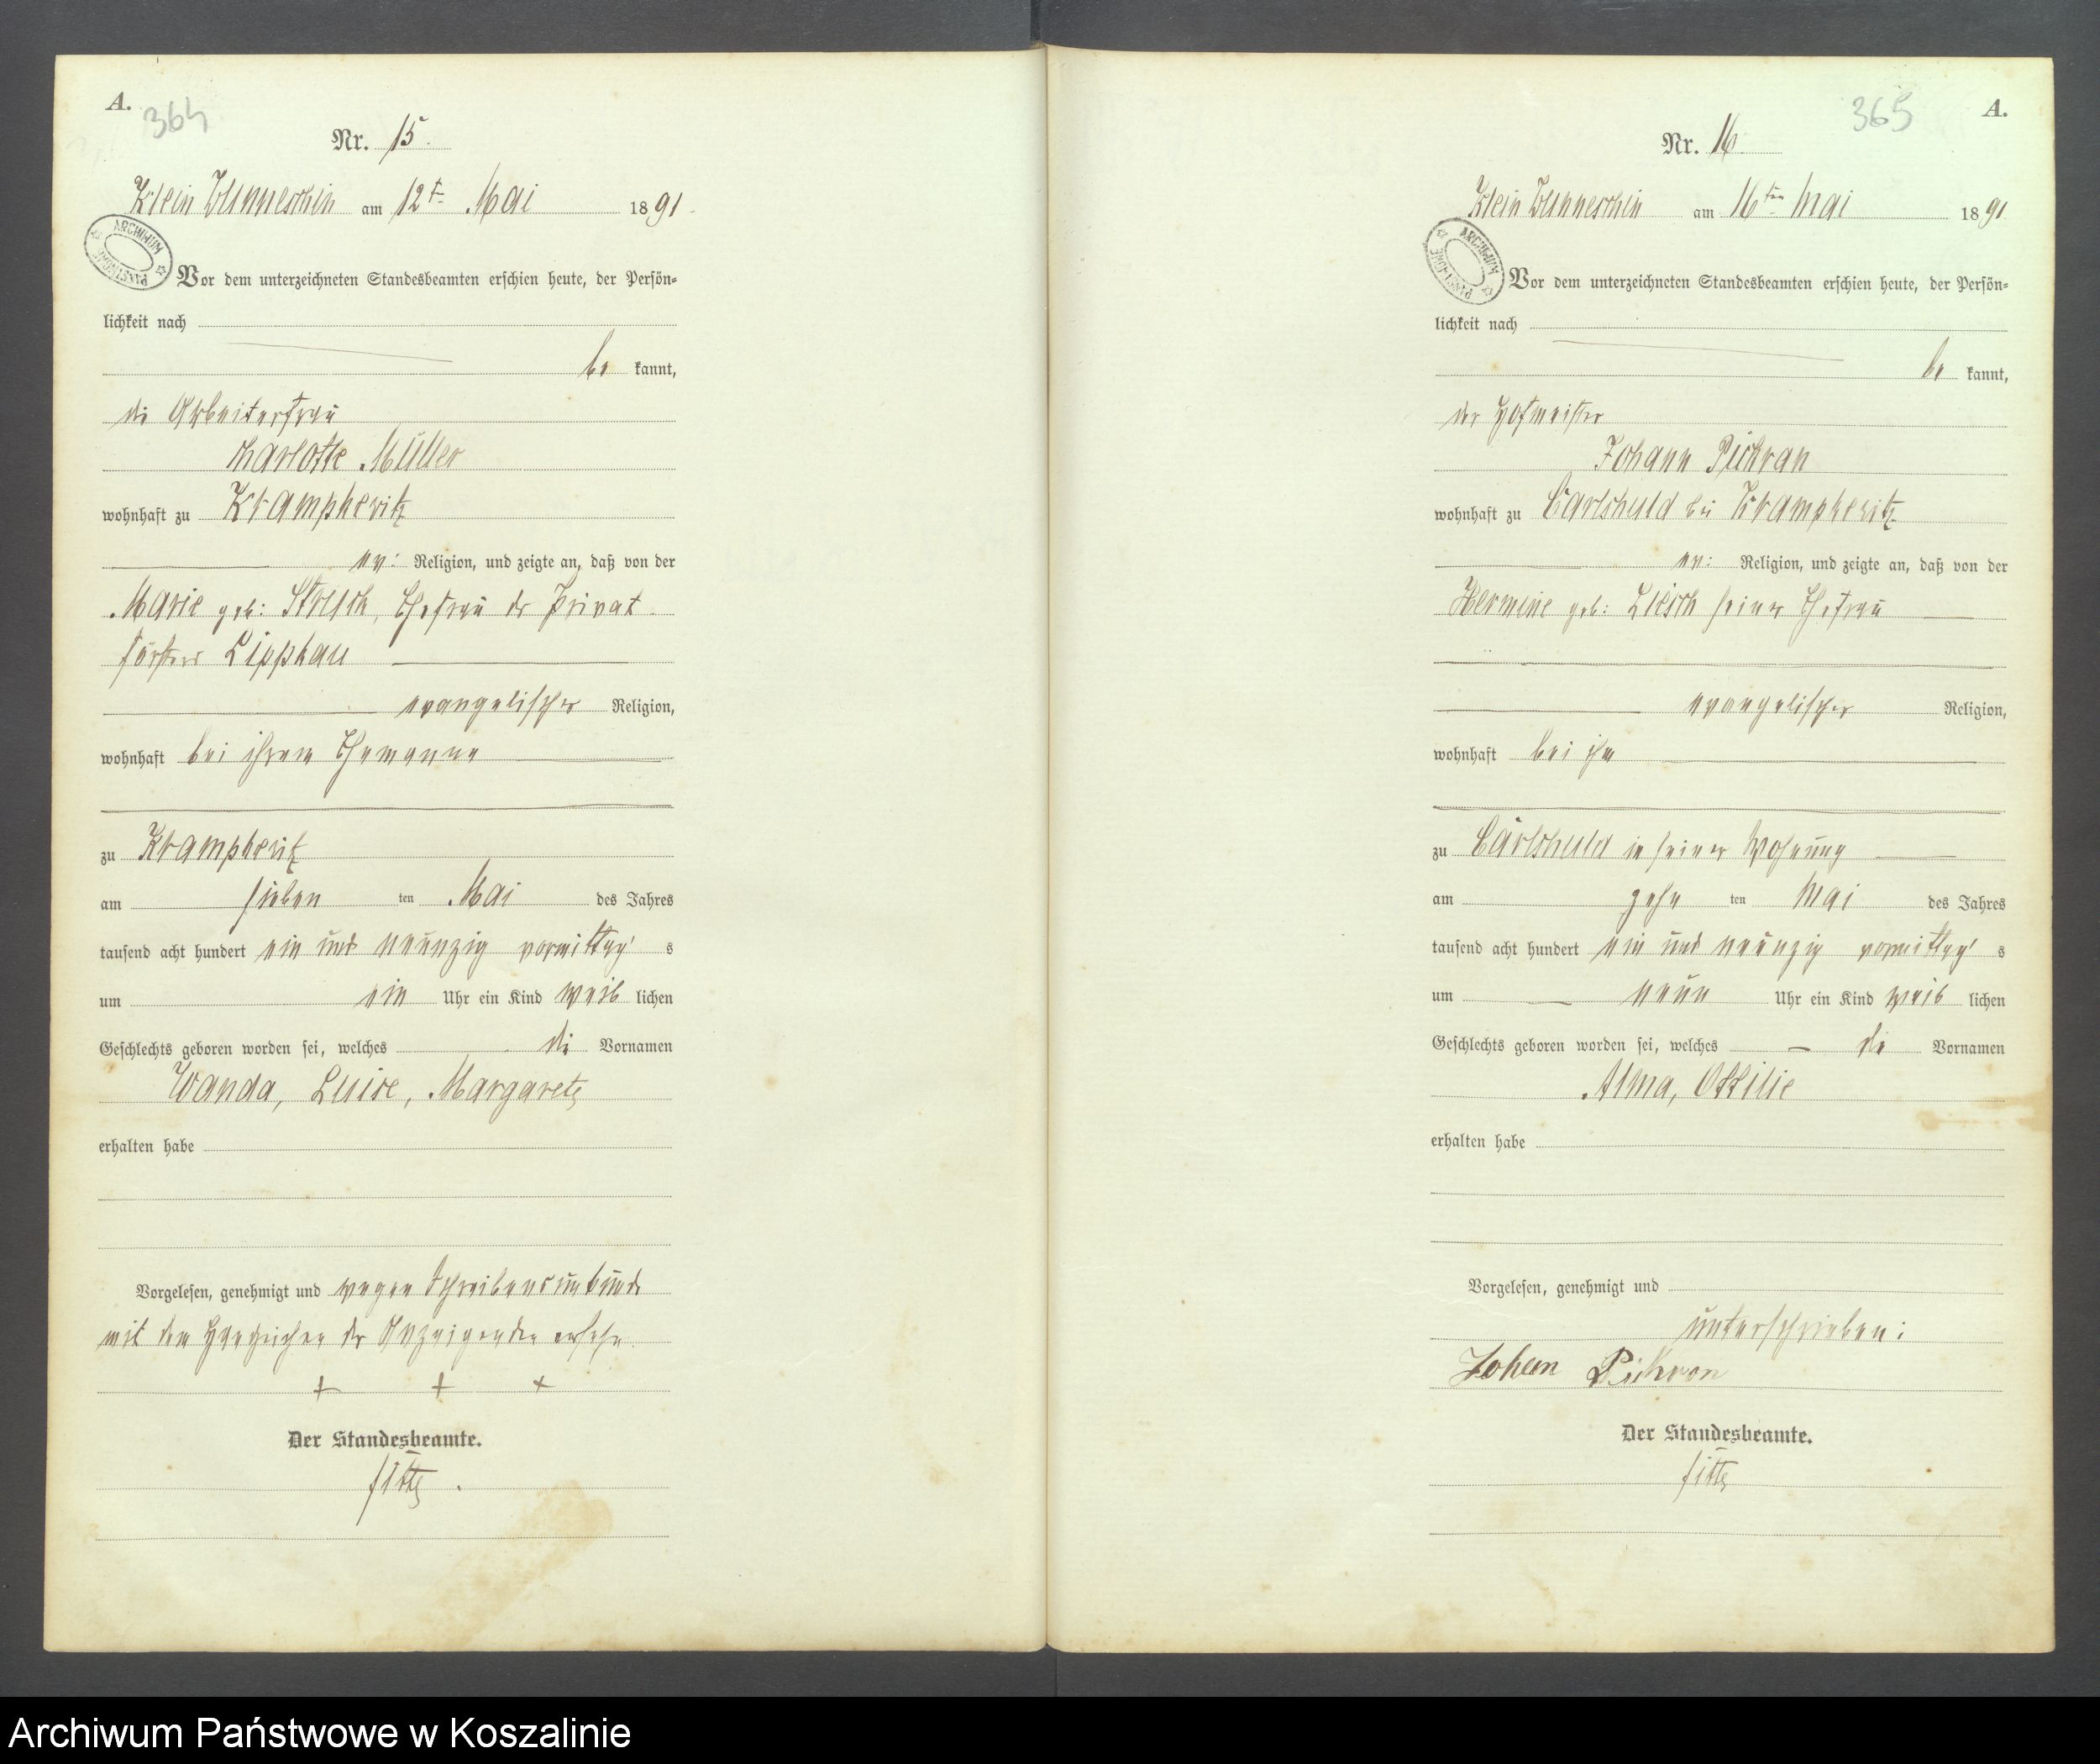 A.
364
Nr. 15.
Klein Wunneschin am 12t Mai 1891.
ARCHIWUM PAŃSTWOWE
Vor dem unterzeichneten Standesbeamten erschien heute, der Persön-
lichkeit nach
be kannt,
die Arbeiterfrau
Charlotte Müller
wohnhaft zu Krampkewitz
ev: Religion, und zeigte an, daß von der
Marie geb: Ehefrau des Privat
försters Lippkau
evangelischer Religion,
wohnhaft bei ihrem Ehemanne
zu Krampkewitz
am sieben ten Mai des Jahres
tausend acht hundert ein und neunzig vormittag s
um ein Uhr ein Kind weib lichen
Geschlechts geboren worden sei, welches die Vornamen
Wanda, Luise, Margarete
erhalten habe
Vorgelesen, genehmigt und wegen Schreibensunkunde
mit dem Handzeichen der Anzeigenden versehn
+ + +
Der Standesbeamte.
365
A.
Nr. 16.
Klein Wunneschin am 16ten Mai 1891.
ARCHIWUM PAŃSTWOWE
Vor dem unterzeichneten Standesbeamten erschien heute, der Persön-
lichkeit nach
be kannt,
der Hofmeister
Johann Pickran
wohnhaft zu Carlshuld bei Krampkewitz
ev: Religion, und zeigte an, daß von der
Hermine geb: Liesch seiner Ehefrau
evangelischer Religion,
wohnhaft bei ihm
zu Carlshuld in seiner Wohnung
am zehn ten Mai des Jahres
tausend acht hundert ein und neunzig vormittag s
um neun Uhr ein Kind weib lichen
Geschlechts geboren worden sei, welches die Vornamen
Alma, Ottilie
erhalten habe
Vorgelesen, genehmigt und
unterschrieben:
Johan Pickron
Der Standesbeamte.
Archiwum Państwowe w Koszalinie